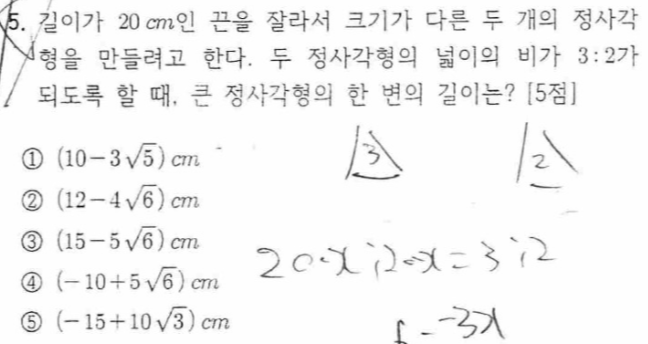 5. 길이가 20 cm인 끈을 잘라서 크기가 다른 두 개의 정사각
형을 만들려고 한다. 두 정사각형의 넓이의 비가 3:2가
되도록 할 때, 큰 정사각형의 한 변의 길이는? [5점]
① (10-3√5) cm
3 2
② (12-4√6) cm
③ (15-5√6) cm
④ (-10+5√6) cm
⑤ (-15+10√3) cm
-3x